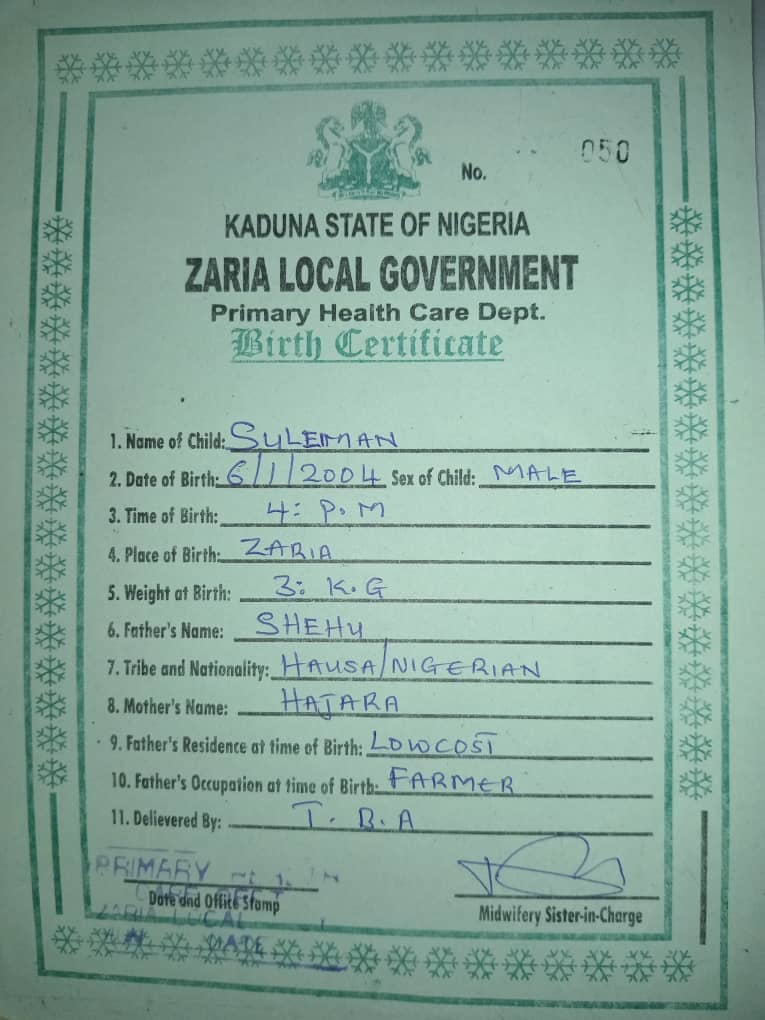 No. 050
KADUNA STATE OF NIGERIA
ZARIA LOCAL GOVERNMENT
Primary Health Care Dept.
Birth Certificate
1. Name of Child: SULEIMAN
2. Date of Birth: 6/1/2004 Sex of Child: MALE
3. Time of Birth: 4: P.M
4. Place of Birth: ZARIA
5. Weight at Birth: 3: K.G
6. Father's Name: SHEHU
7. Tribe and Nationality: HAUSA/NIGERIAN
8. Mother's Name: HAJARA
9. Father's Residence at time of Birth: LOWCOST
10. Father's Occupation at time of Birth: FARMER
11. Delievered By: T. B. A
PRIMARY
CARE DEPT
Date and Office Stamp
Midwifery Sister-in-Charge
ZARIA LOCAL
DATE